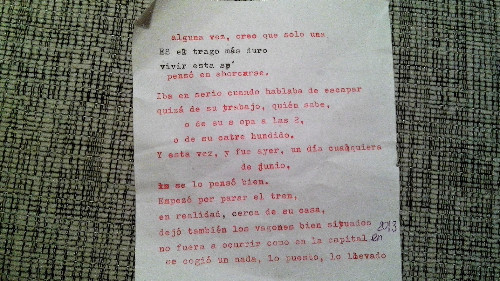 alguna vez, creo que solo una
ES el trago más duro
vivir esta
pensó en ahorcarse.
Iba en serio cuando hablaba de escapar
quizá de su trabajo, quién sabe,
o de su sopa a las 8,
o de su catre hundido.
Y esta vez, y fue ayer, un día cualquiera
de junio,
se lo pensó bien.
Empezó por parar el tren,
en realidad, cerca de su casa,
dejó también los vagones bien situados 2013
no fuera a ocurrir como en la capital en
se cogió un nada, lo puesto, lo llevado